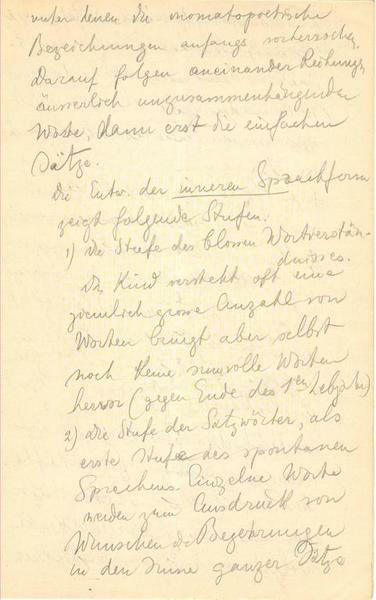 unter denen die onomatopoetische
Bezeichnungen anfangs vorherrschen,
Darauf folgen aneinander Reihungen
äusserlich unzusammenhängender
Worte, dann erst die einfachen
Sätze.
Die Entw. der inneren Sprachform
zeigt folgende Stufen.
1) Die Stufe des blossen Wortverstän-
dnisses.
Das Kind versteht oft eine
ziemlich grosse Anzahl von
Worten bringt aber selbst
noch keine sinnvolle Worten
hervor (gegen Ende des 1ten Lebjahr)
2) Die Stufe der Satzwörter, als
erste Stufe des spontanen
Sprechens. Einzelne Worte
werden zum Ausdruck von
Wünschen Begehrungen
in den Sinne ganzer Sätze